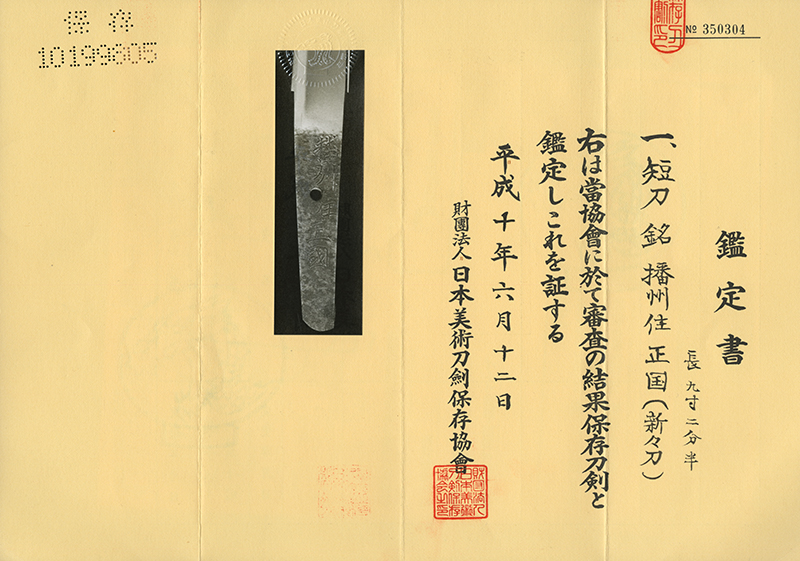 鑑定書
一、短刀 銘 播州住正国(新々刀)
長九寸二分半
右は當協會に於て審査の結果保存刀剣と
鑑定しこれを証する
平成十年六月十二日
財團法人日本美術刀劍保存協會
№ 350304
保存
10199805